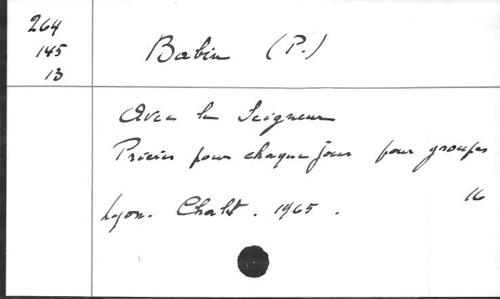 264
145
13
Babin (P.)
Avec le Seigneur
Prières pour chaque jour pour groupes
Lyon. Chalet. 1965.
16